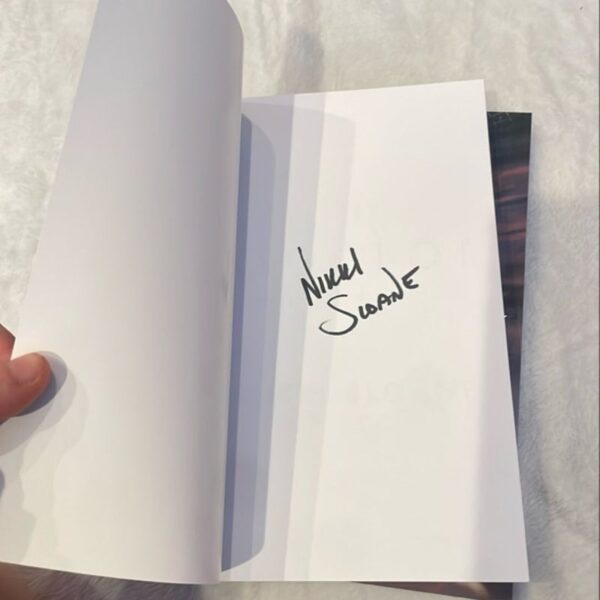 Nikki
Sloane